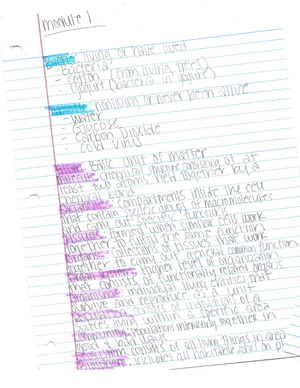 module 1
living or have lived
- Bacteria
- Cotton (from living trees)
- Yogurt (bacteria in yogurt)
nonliving or never been alive
- Water
- Glucose
- Carbon Dioxide
- Cold Virus
Basic unit of matter
chemical structure consisting of at
least two atoms held together by a
chemical bond
compartments inside the cell
that contain specific groups of macromolecules
and carry specific functions
formed when similar cells work
together to perform the same function
Organs: collections of tissues that work
together to carry out several common functions
Organ systems: Higher level of organization
that consists of functionally related organs
Organisms: individual living entities that
survive and reproduce as a unit
consists of all individuals of a
species living within a specific area
populations interacting together in
good & bad ways
consists of all living things in area
Biosphere: includes all inhabitable land on pl